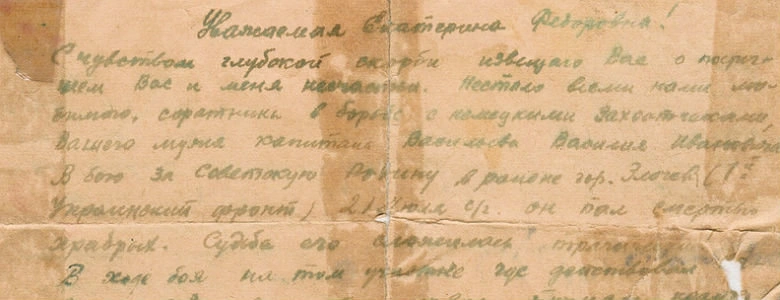 Уважаемая Екатерина Федоровна!
С чувством глубокой скорби извещаю Вас о постиг-
шем Вас и меня несчастьи. Нестало всеми нами лю-
бимого, соратника в борьбе с немецкими захватчиками,
Вашего мужа капитана Васильева Василия Ивановича
В бою за Советскую Родину в районе гор. Злочев (1й
Украинский фронт) 21 июля с/г. он пал смертью
храбрых. Судьба его сложилась трагически
В ходе боя на том участке где действовал